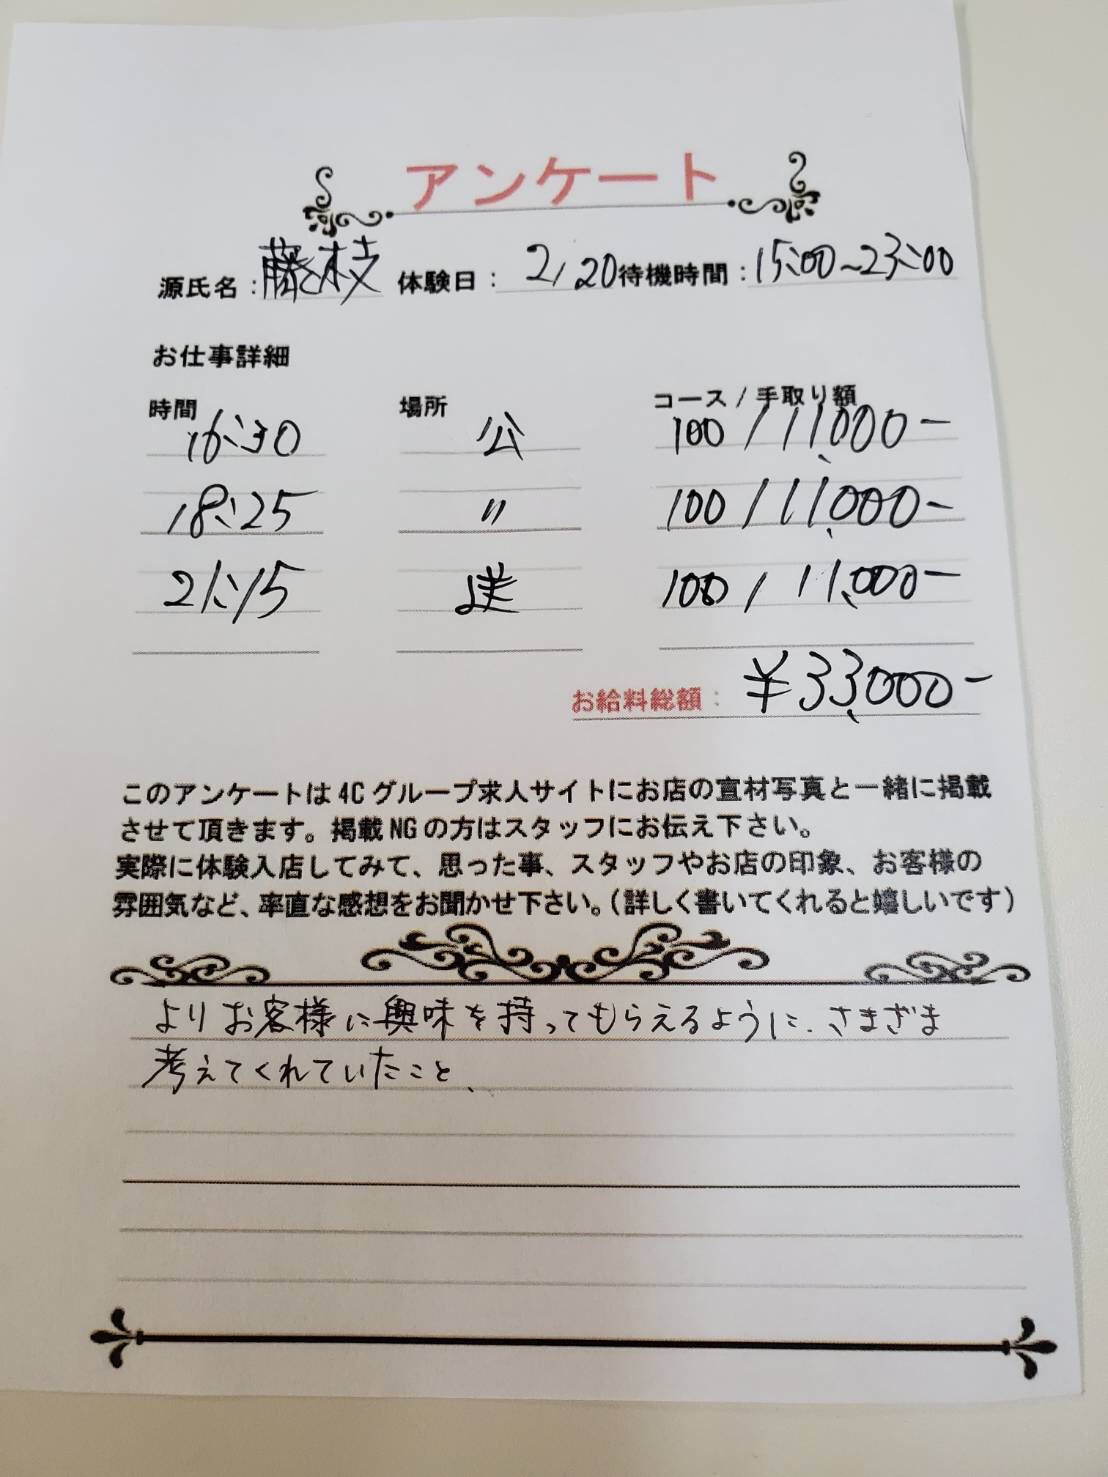 アンケート
源氏名：藤枝 体験日： 2/20 待機時間：15:00~23:00
お仕事詳細
時間 場所 コース / 手取り額
16:30 公 100 / 11,000-
18:25 〃 100 / 11,000-
21:15 100 / 11,000-
お給料総額： ¥33,000-
このアンケートは4Cグループ求人サイトにお店の宣材写真と一緒に掲載
させて頂きます。掲載NGの方はスタッフにお伝え下さい。
実際に体験入店してみて、思った事、スタッフやお店の印象、お客様の
雰囲気など、率直な感想をお聞かせ下さい。（詳しく書いてくれると嬉しいです）
よりお客様に興味を持ってもらえるように、さまざま
考えてくれていたこと、